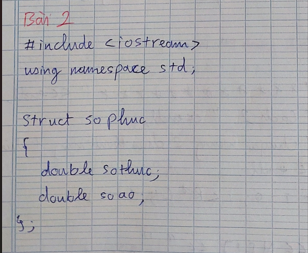 Bài 2
#include <iostream>
using namespace std;
struct sophuc
{
double sothuc;
double soao;
};